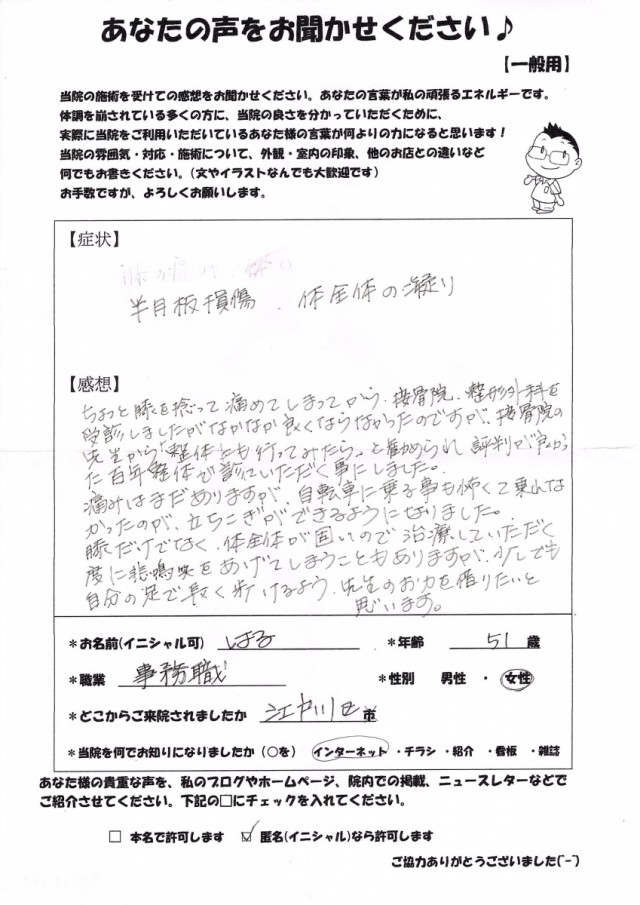 あなたの声をお聞かせください♪
【一般用】
当院の施術を受けての感想をお聞かせください。あなたの言葉が私の頑張るエネルギーです。
体調を崩されている多くの方に、当院の良さを分かっていただくために、
実際に当院をご利用いただいているあなた様の言葉が何よりの力になると思います！
当院の雰囲気・対応・施術について、外観・室内の印象、他のお店との違いなど
何でもお書きください。（文やイラストなんでも大歓迎です）
お手数ですが、よろしくお願いします。
【症状】
半月板損傷 . 体全体の凝り
【感想】
ちょっと膝を捻って痛めてしまってから、接骨院、整形外科を
受診しましたがなかなか良くならなかったのですが、接骨院の
先生から「整体とも行ってみたら」と勧められ評判が良かっ
た百年整体で診ていただく事にしました。
痛みはまだありますが、自転車に乗る事も怖くて乗れな
かったのが、立ちこぎができるようになりました。
膝だけでなく、体全体が固いので治療していただく
度に悲鳴をあげてしまうこともありますが、少しでも
自分の足で長く歩けるよう、先生のお力を借りたいと
思います。
＊お名前(イニシャル可) はる ＊年齢 51 歳
＊職業 事務職 ＊性別 男性 ・ 女性
＊どこからご来院されましたか 江戸川区 市
＊当院を何でお知りになりましたか（○を） インターネット ・チラシ ・紹介 ・看板 ・雑誌
あなた様の貴重な声を、私のブログやホームページ、院内での掲載、ニュースレターなどで
ご紹介させてください。下記の□にチェックを入れてください。
□ 本名で許可します ☑ 匿名(イニシャル)なら許可します
ご協力ありがとうございました(^-^)